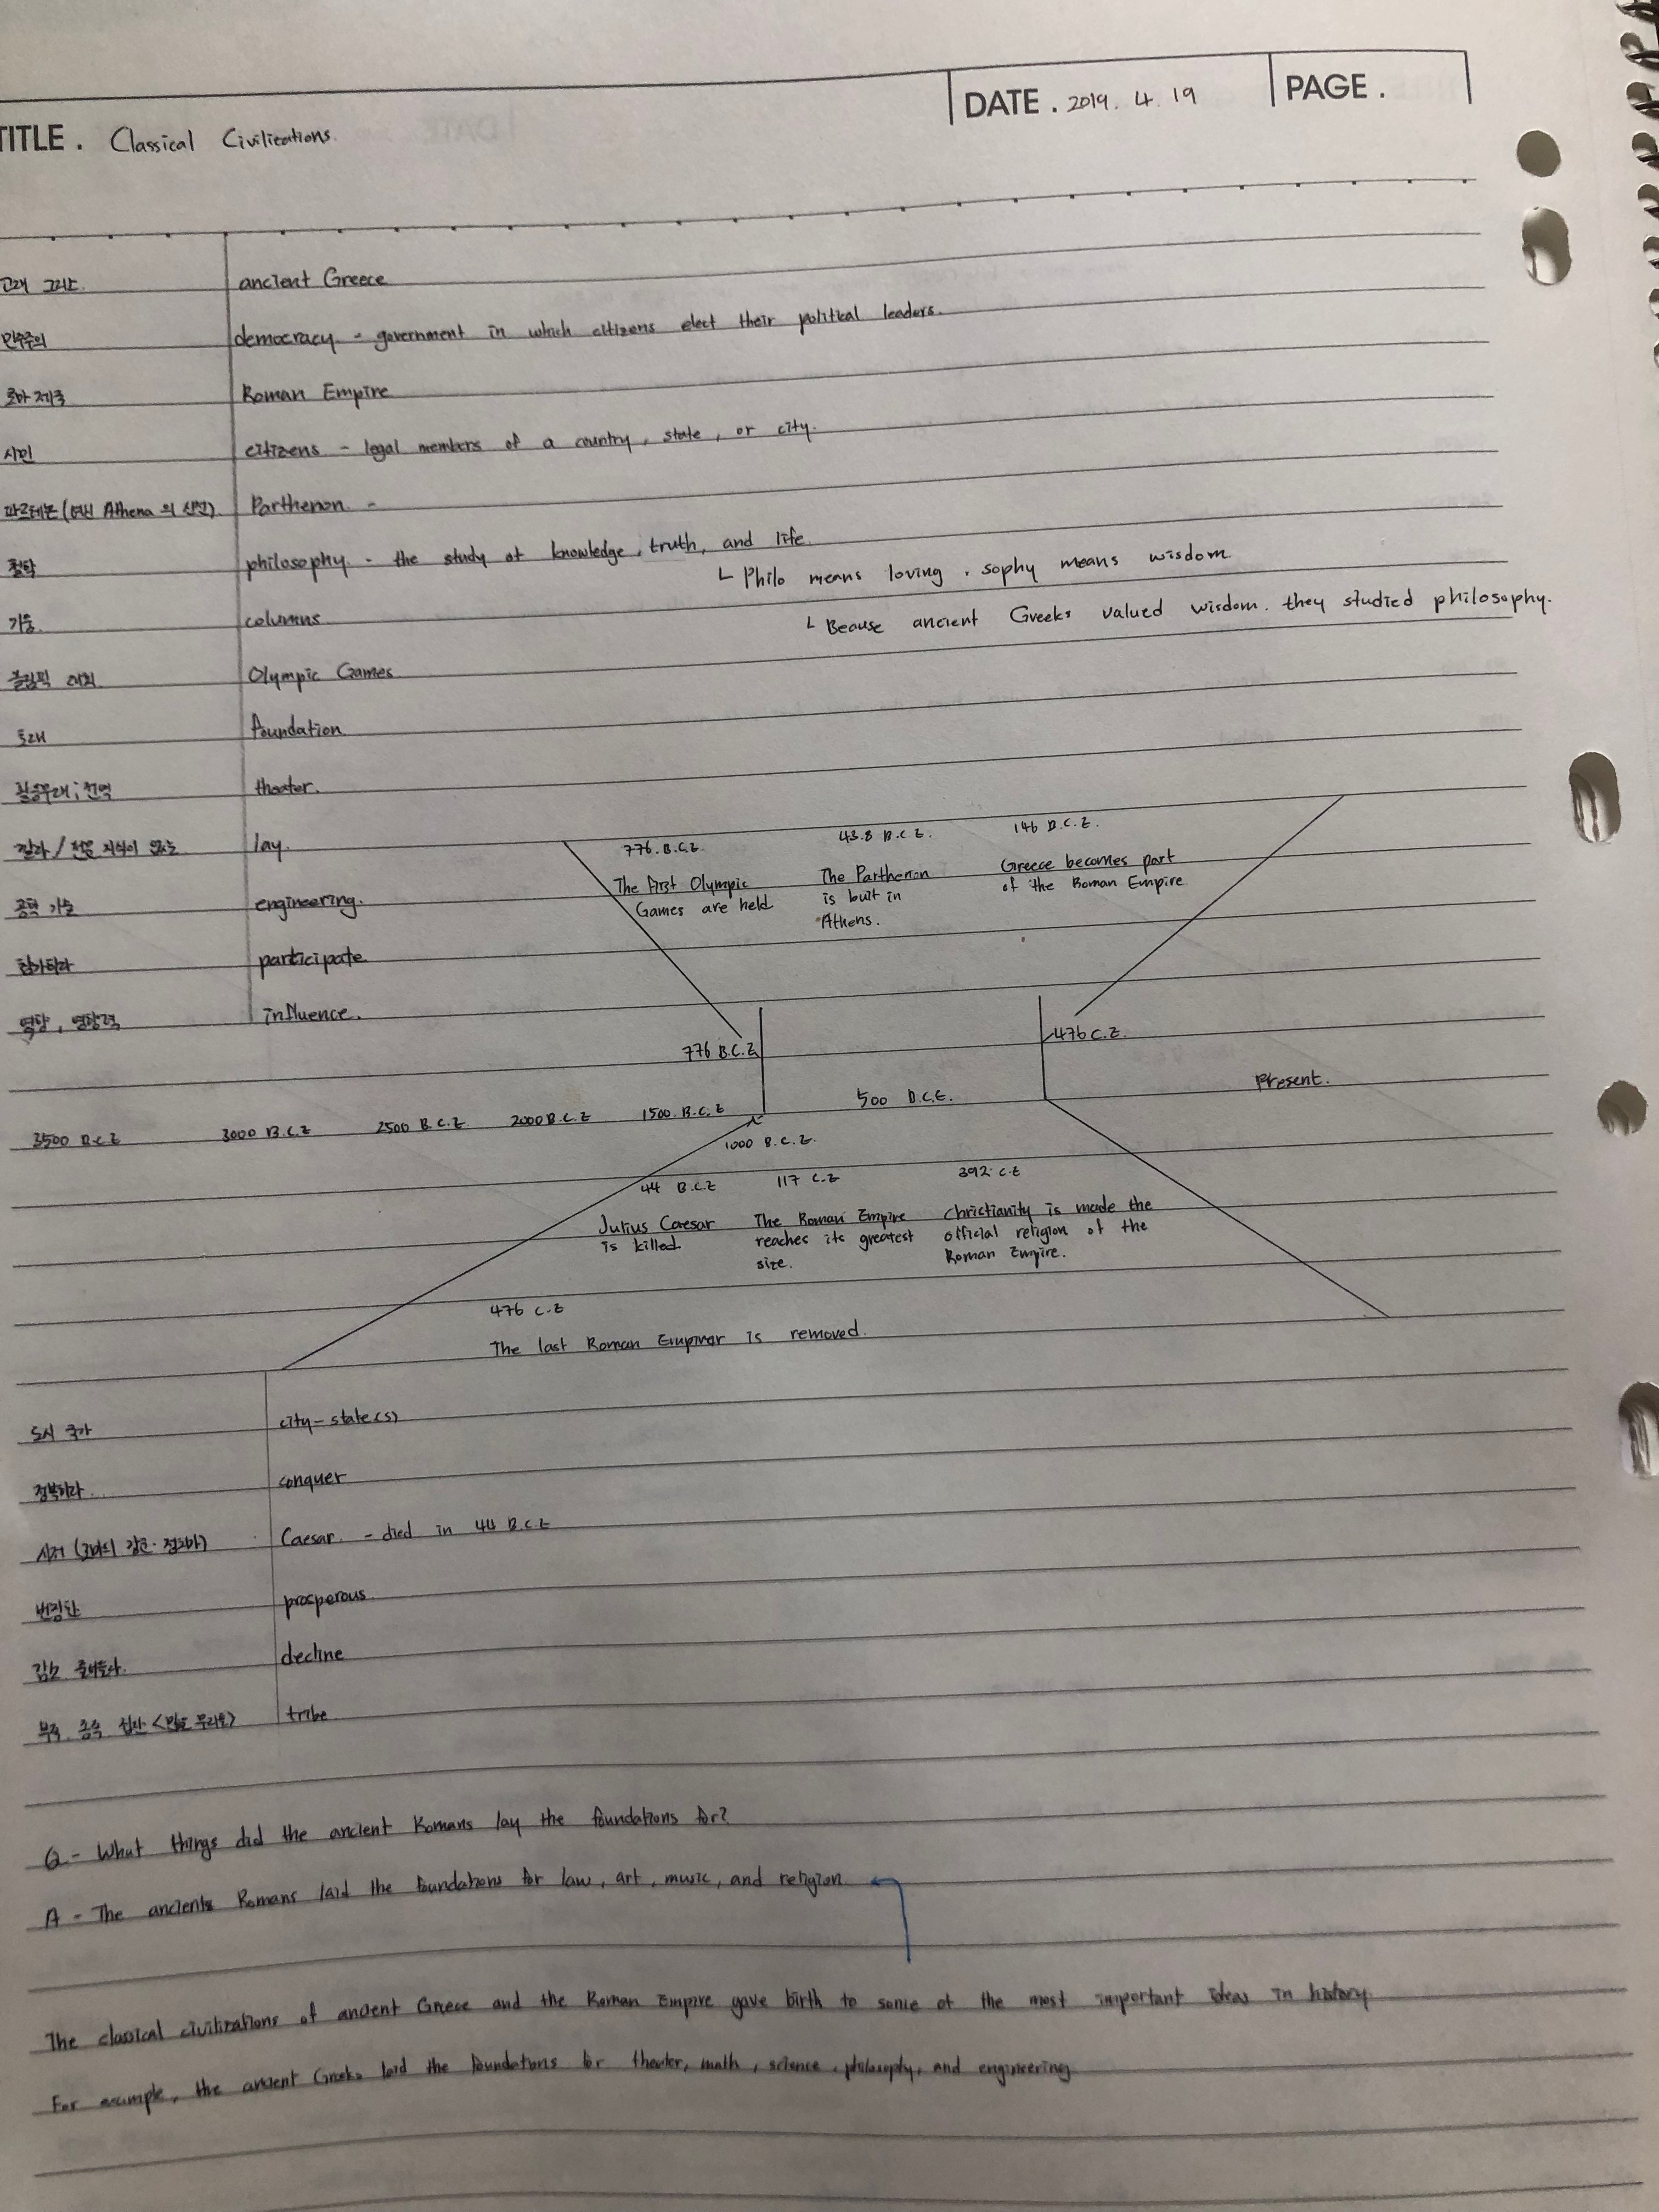 DATE . 2019. 4. 19
PAGE .
TITLE . Classical Civilizations.
고대 그리스. ancient Greece
민주주의 democracy - government in which citizens elect their political leaders.
로마 제국 Roman Empire
시민 citizens - legal members of a country, state, or city.
파르테논 (여신 Athena 의 신전) Parthenon -
철학 philosophy - the study of knowledge, truth, and life.
ㄴ Philo means loving. sophy means wisdom
기둥 columns
ㄴ Beause ancient Greeks valued wisdom. they studied philosophy.
올림픽 대회 Olympic Games
토대 foundation
theater.
깔다 / 전문 지식이 없는 lay
776. B.C.E.
43.8 B.C.E.
146 B.C.E.
The First Olympic
Games are held
The Parthenon
is buit in
Athens.
Greece becomes part
of the Roman Empire
공학 기술 engineering.
참가하다 participate
영향, 영향력 influence.
776 B.C.E
476 C.E.
3500 B.C.E 3000 B.C.E 2500 B.C.E 2000 B.C.E 1500. B.C.E 500 B.C.E. Present.
1000 B.C.E.
44 B.C.E
117 C.E
392 C.E
Julius Caesar
is killed
The Roman Empire
reaches its greatest
size.
christianity is made the
official religion of the
Roman Empire.
476 C.E
The last Roman Emperor is removed.
도시 국가 city-state(s)
정복하다. conquer
시저 (로마의 장군·정치가) Caesar. - died in 44 B.C.E
번창한 prosperous
감소 줄어들다. decline
부족 종족 집단 tribe
Q - What things did the ancient Romans lay the foundations for?
A - The ancients Romans laid the foundations for law, art, music, and religion.
The classical civilizations of ancient Greece and the Roman Empire gave birth to some of the most important ideas in history.
For example, the ancient Greeks laid the foundations for theater, math, science, philosophy, and engineering